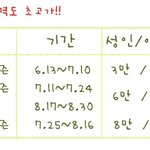 격도 초고가!!
기간 성인/
즌 6.13~7.10 3만 /
즌 7.11~7.24 6만 /
8.17~8.30
즌 7.25~8.16 8만 /